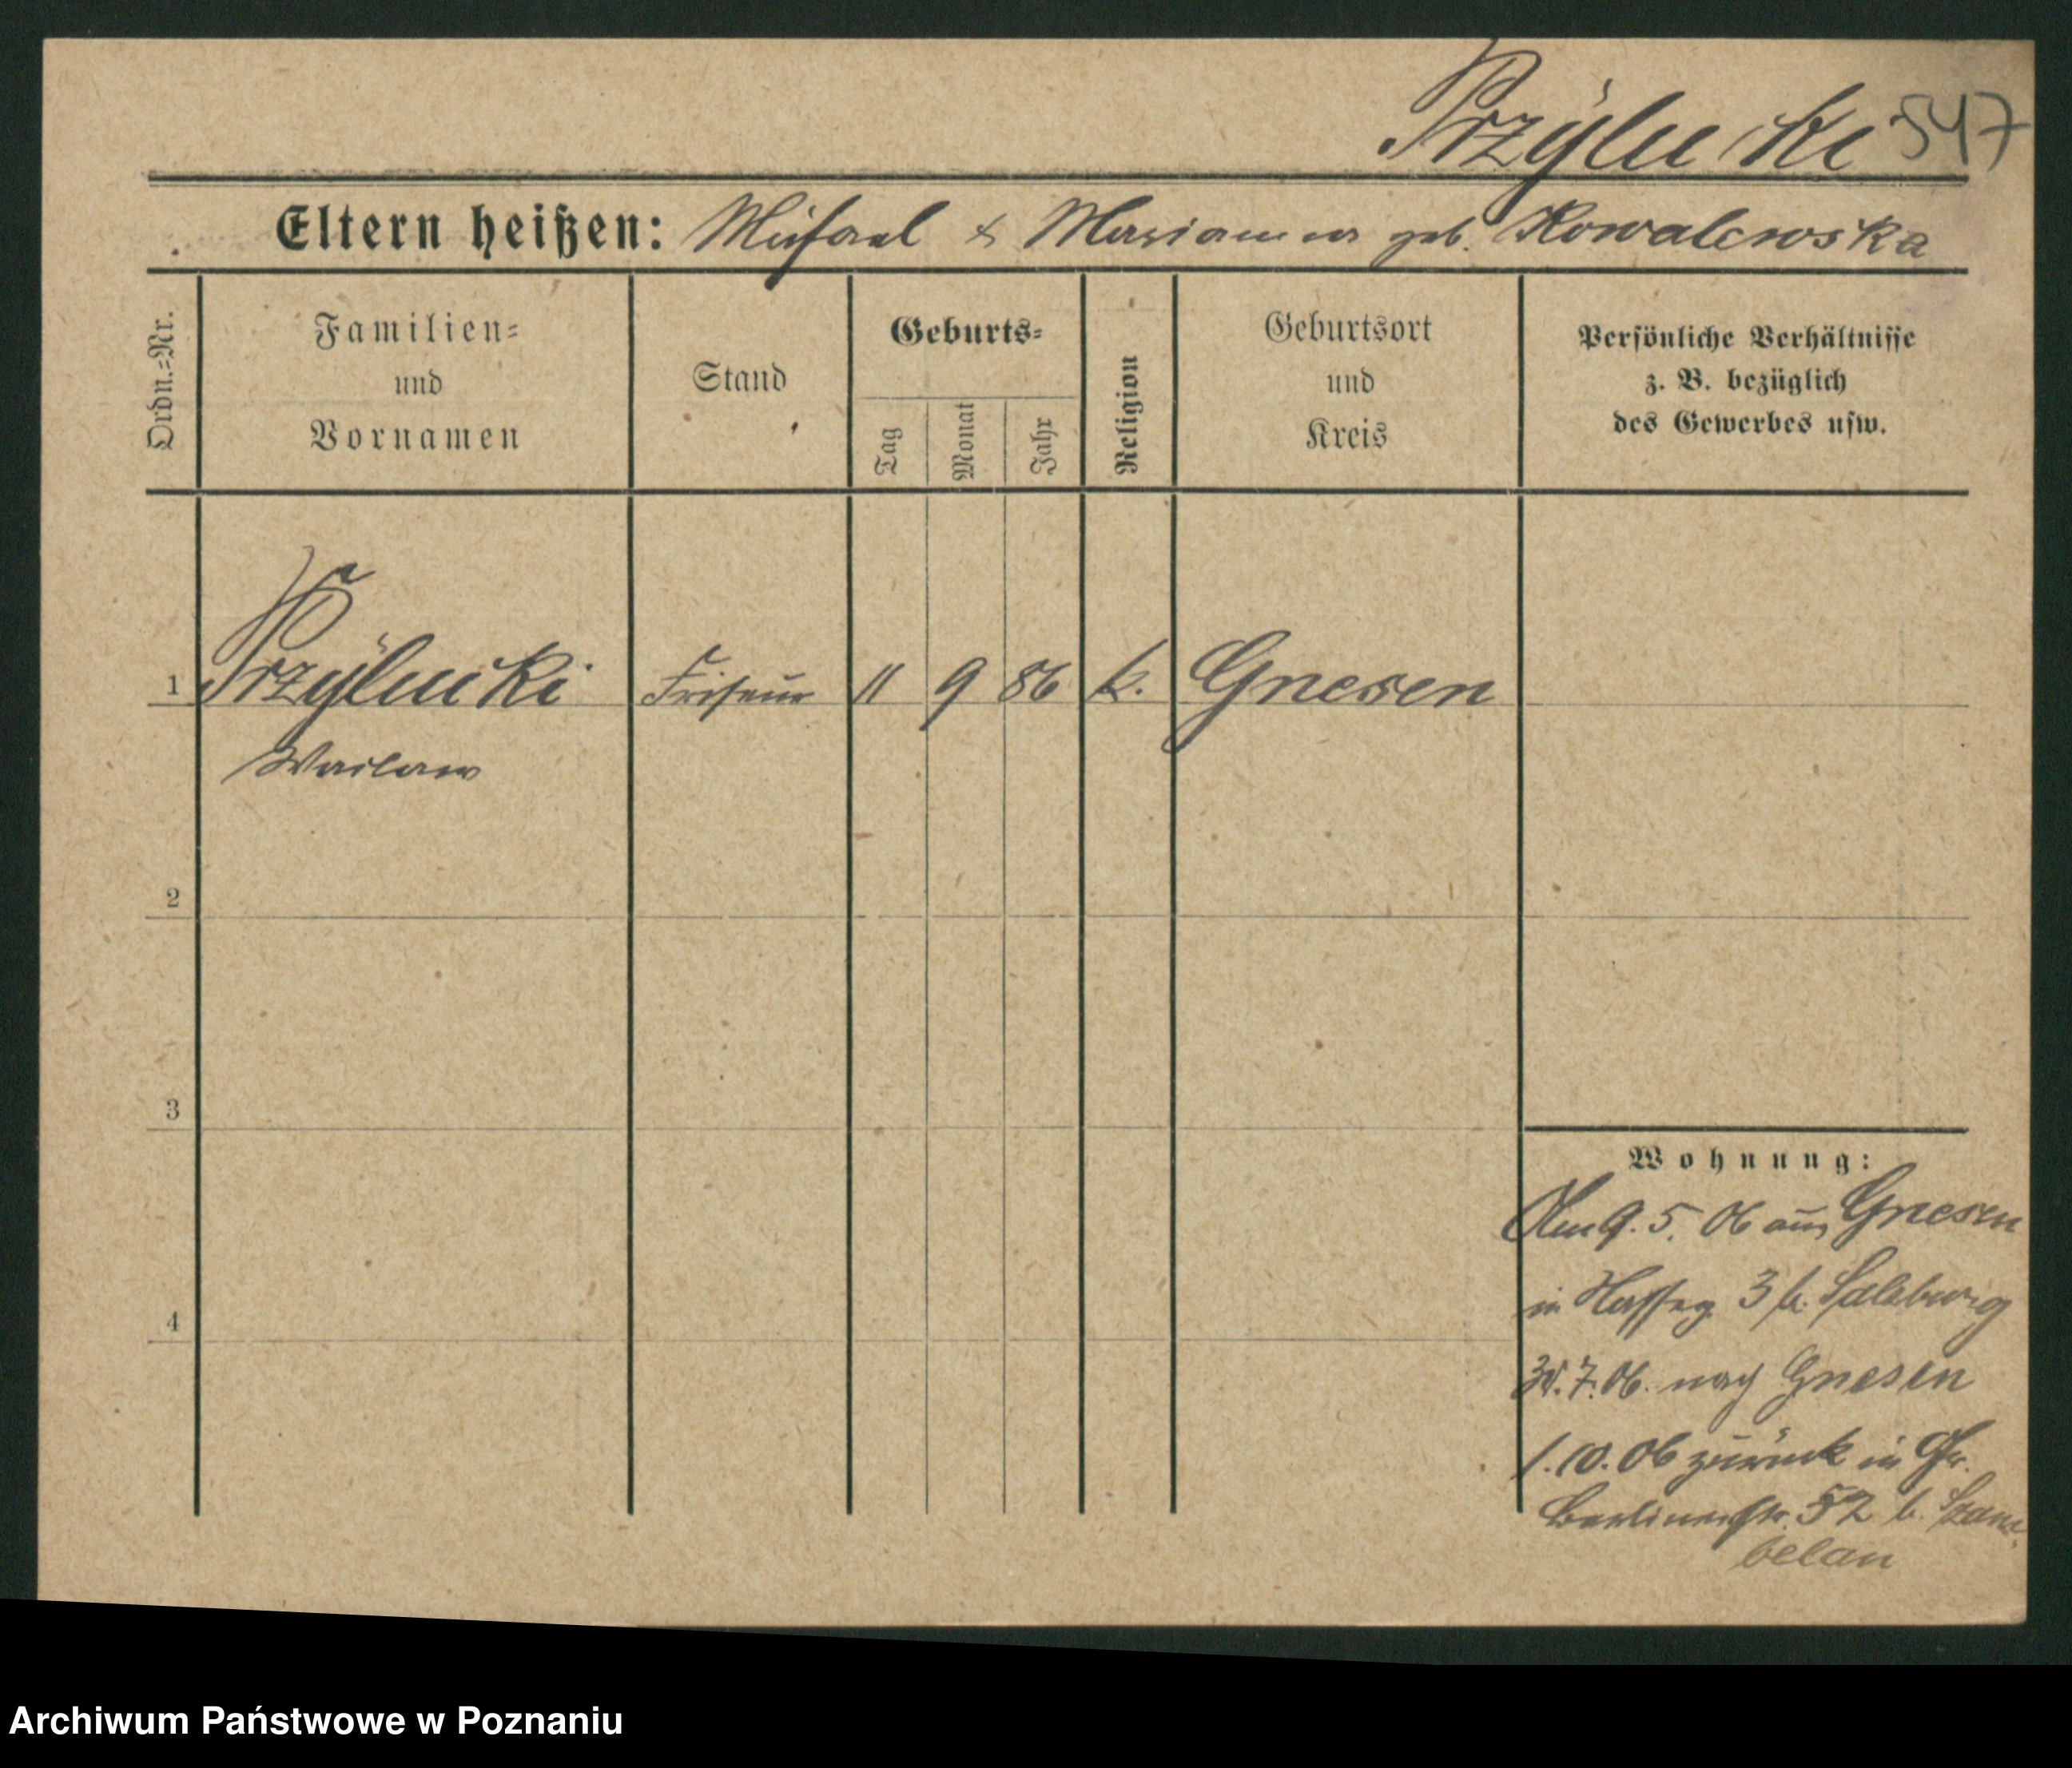 Przylucki 547
Eltern heißen: Michael & Marianna geb. Kowalewska
Ordn.=Nr.
Familien=
und
Vornamen
Stand
Geburts=
Tag
Monat
Jahr
Religion
Geburtsort
und
Kreis
Persönliche Verhältnisse
z. B. bezüglich
des Gewerbes usw.
1 Przylucki Friseur 11 9 86 k. Gnesen
Waclaw
2
3
4
Wohnung:
Am 9. 5. 06 aus Gnesen
in 3 b. Salzburg
7. 06. nach Gnesen
1. 10. 06 zurück in
Berlinerstr. 52 b.
belan
Archiwum Państwowe w Poznaniu